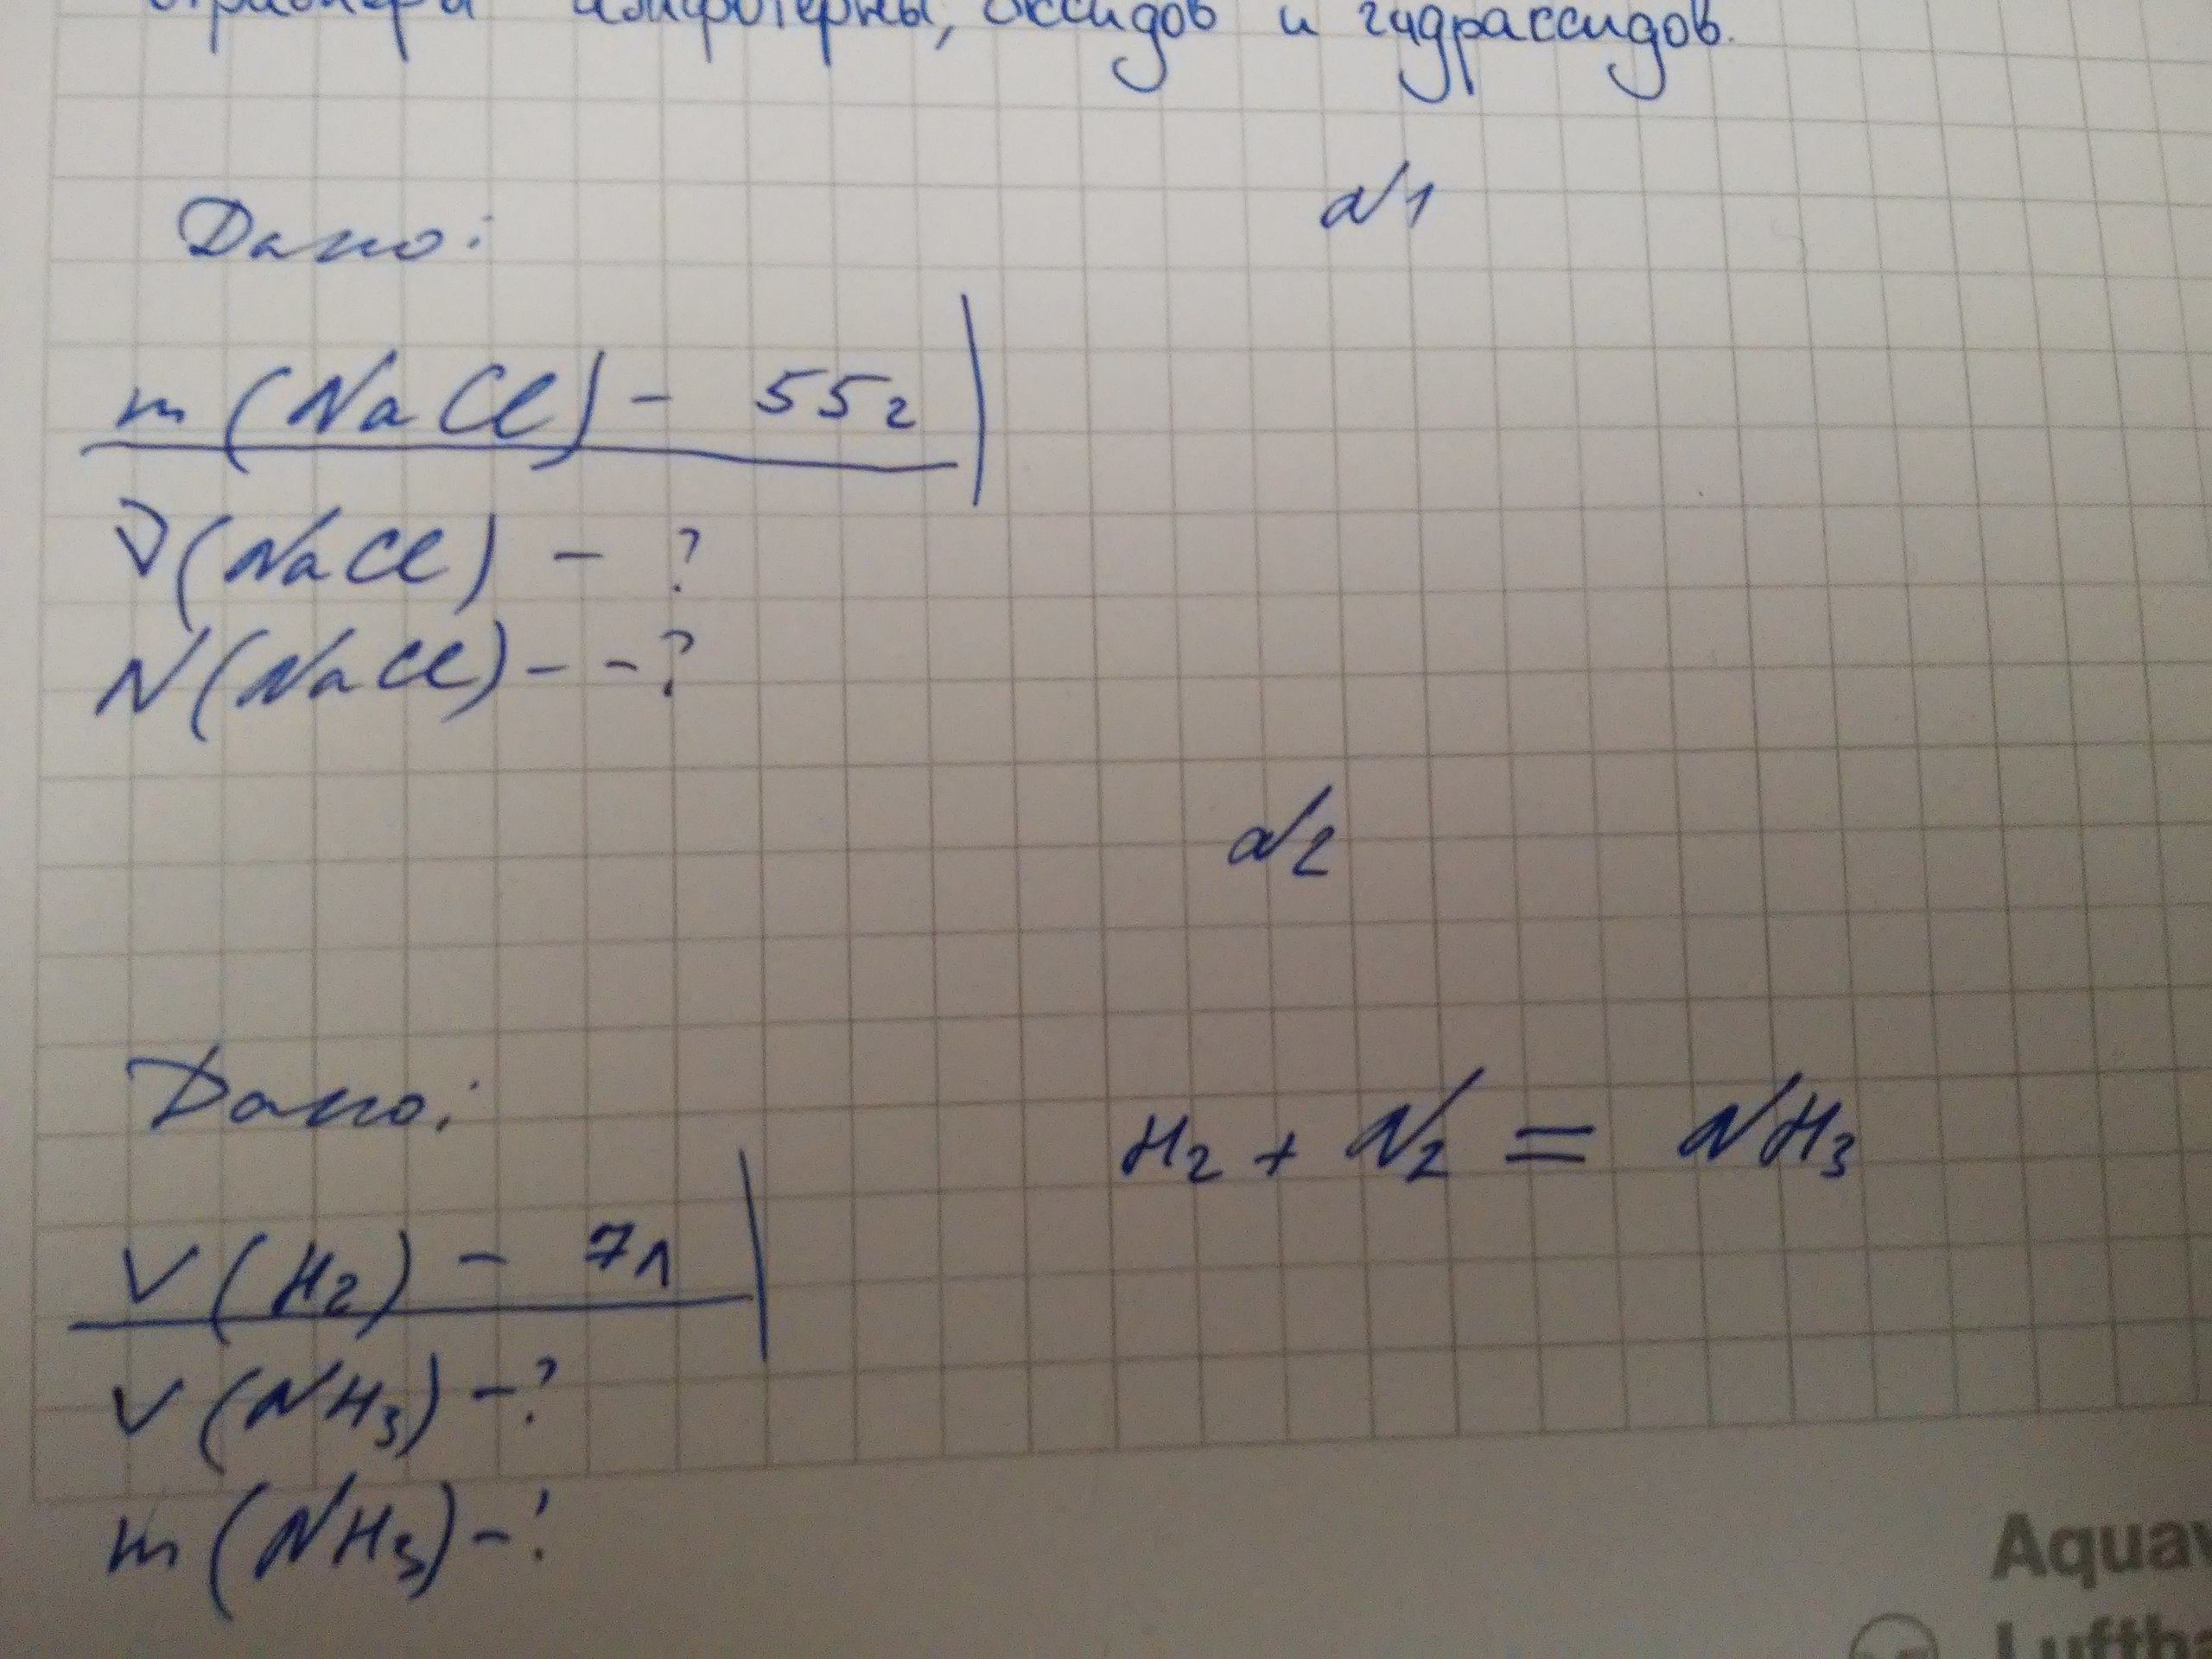 амфотерны, оксидов и гидрассидов.
№1
Дано:
m (NaCl) - 55г
ν (NaCl) - ?
N (NaCl) - - ?
№2
Дано:
H₂ + N₂ = NH₃
V (H₂) - 7л
V (NH₃) - ?
m (NH₃) - ?
Aquav
Luftha